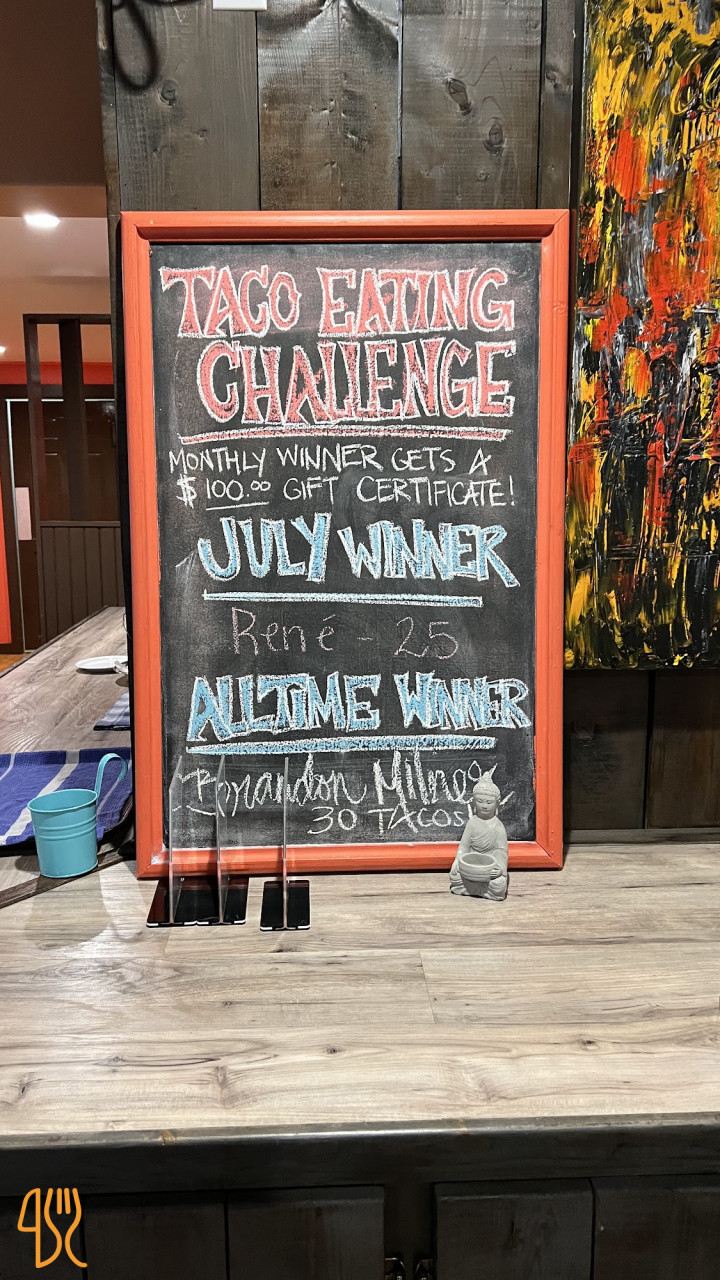 TACO EATING
CHALLENGE
MONTHLY WINNER GETS A
$100.00 GIFT CERTIFICATE!
JULY WINNER
René - 25
ALLTIME WINNER
Brandon Milne
30 TACOS